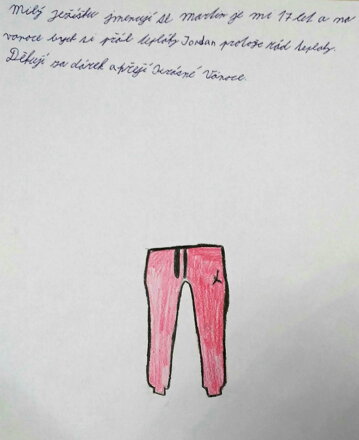 Milý Ježíšku jmenuji se Martin je mi 17 let a na
vanoce bych si přál tepláky Jordan protože rád tepláky.
Děkuji za dárek a přeji Krásné Vánoce.